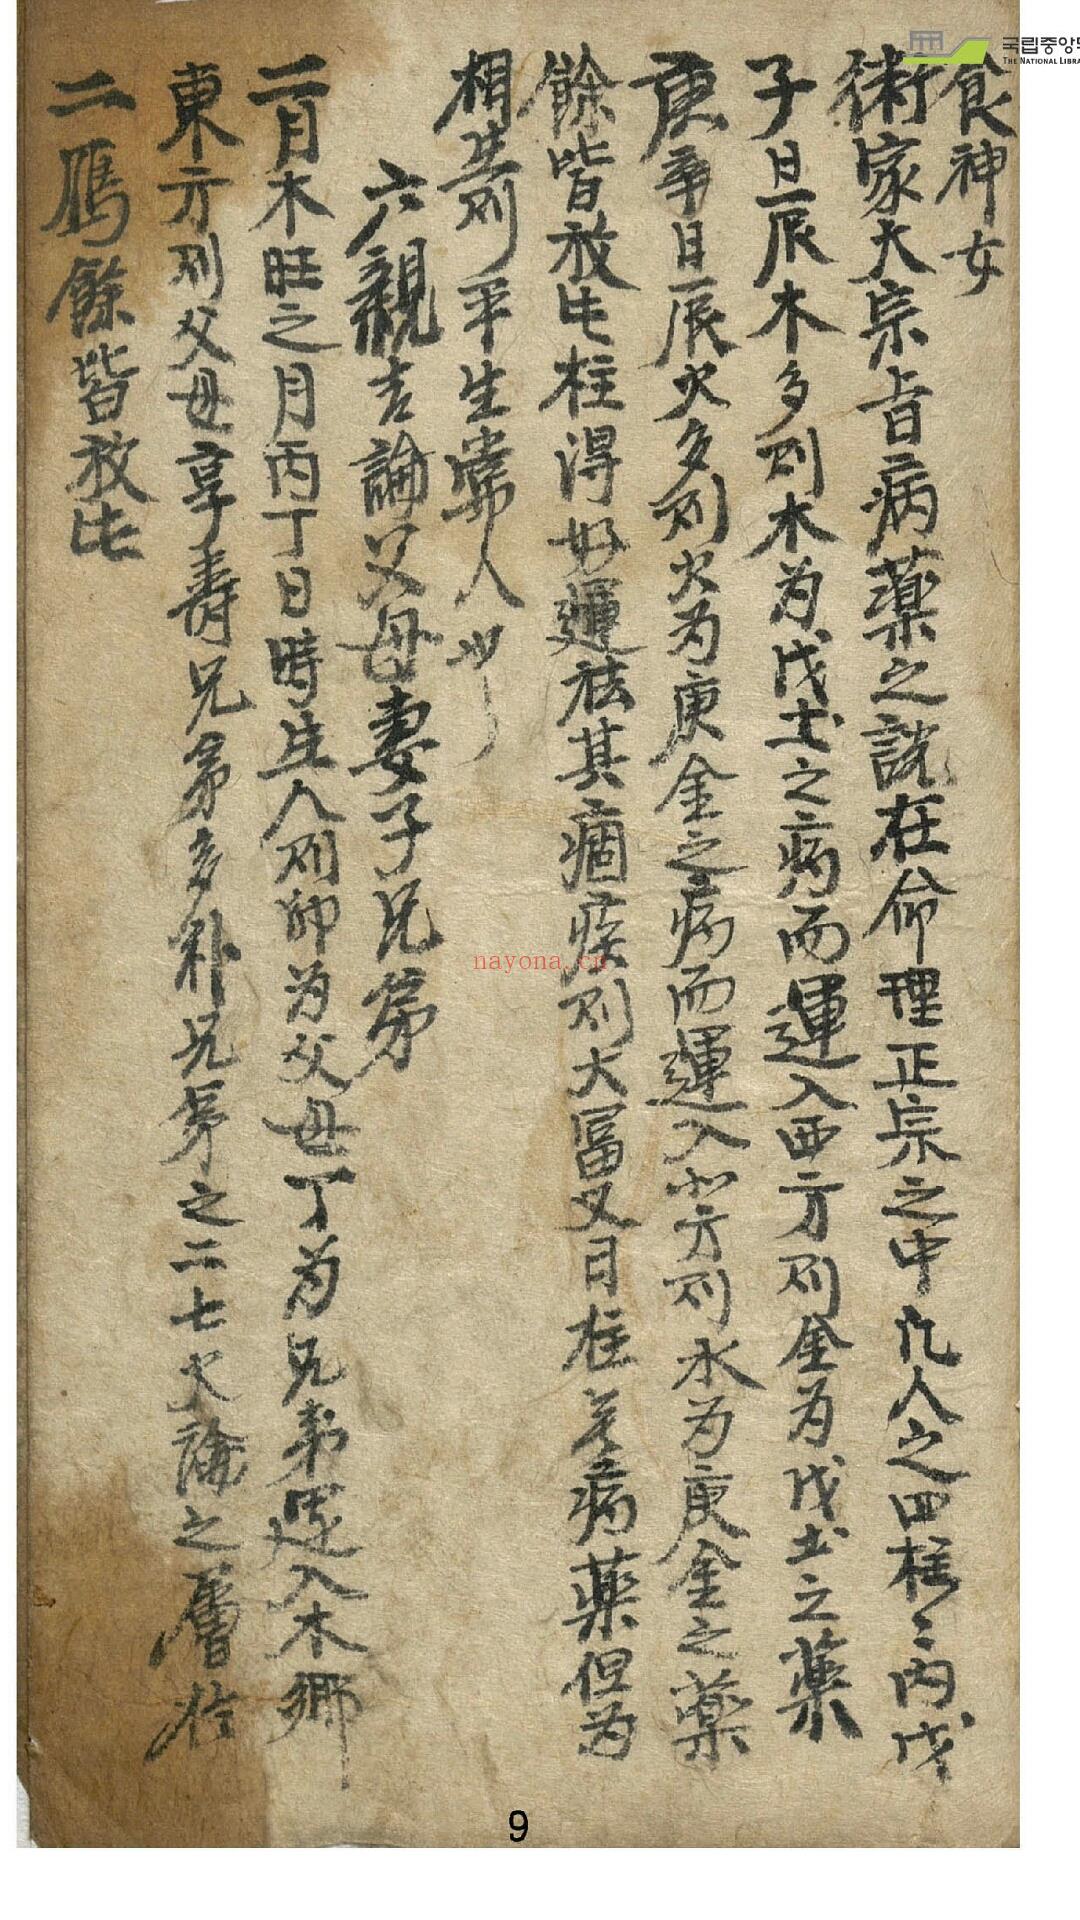 국립중앙도
THE NATIONAL LIBRA
食神女
術家大宗旨病藥之說在命理正宗之中凡人之四柱〻內戊
子日辰木多则木为戊土之病而運入西方则金为戊土之藥
庚辛日辰火多则火为庚金之病而運入北方则水为庚金之藥
餘皆放此柱得好運祛其痼疾则大富又日柱無病藥但为
相生则平生常人也
六親吉論父母妻子兄弟
二月木旺之月丙丁日時生人则卯为父母丁为兄弟運入木鄉
東方则父母享壽兄弟多補兄弟之二七火論之層
二鴈餘皆放此
nayona.cn
9